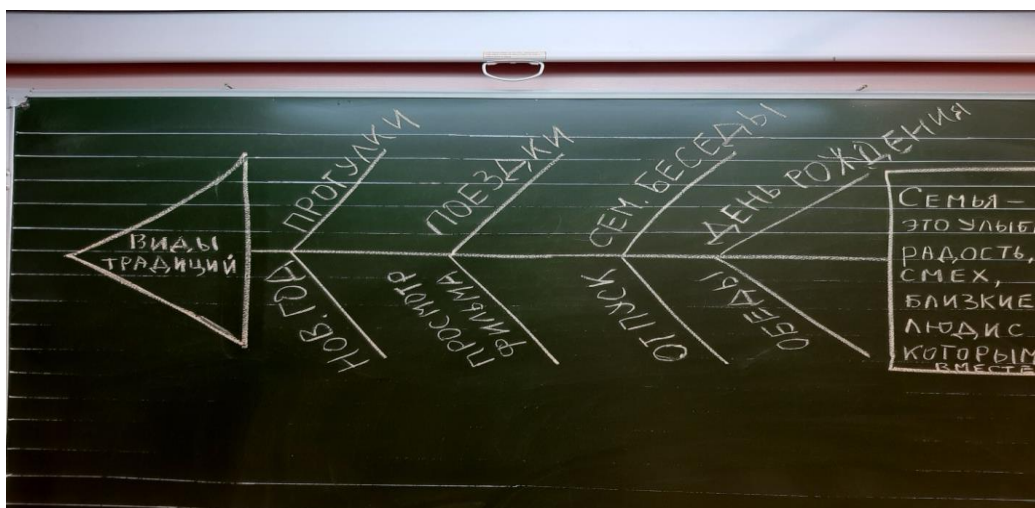 ВИДЫ
ТРАДИЦИЙ
ПРОГУЛКИ
ПОЕЗДКИ
СЕМ. БЕСЕДЫ
ДЕНЬ РОЖДЕНИЯ
НОВ. ГОД
ПРОСМОТР
ФИЛЬМА
ОТПУСК
ОБЕДЫ
СЕМЬЯ –
ЭТО УЛЫБ
РАДОСТЬ,
СМЕХ,
БЛИЗКИЕ
ЛЮДИ С
КОТОРЫМ
ВМЕСТЕ